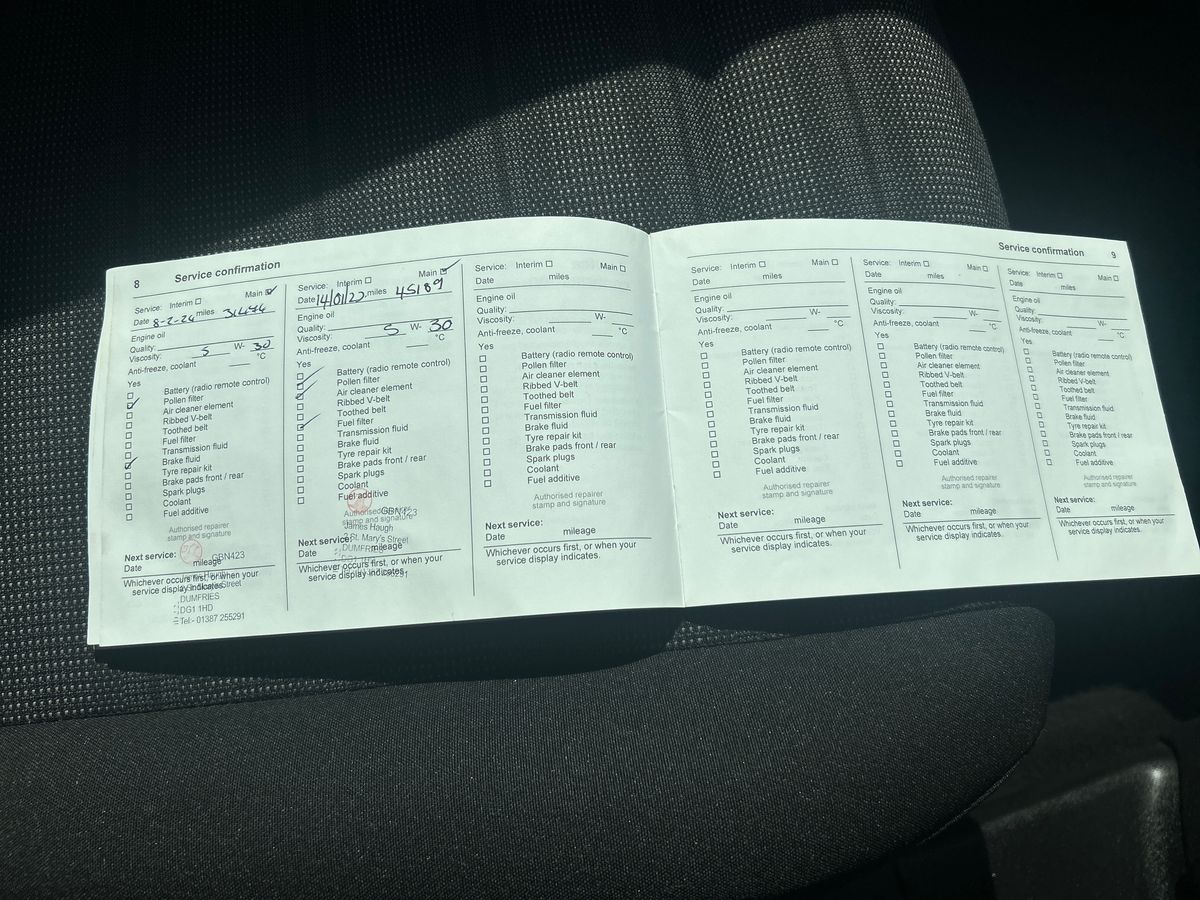 8 Service confirmation
Service: Interim Main
Date 8-2-20 miles 31474
Engine oil
Quality:
Viscosity: 5 W- 30
Anti-freeze, coolant °C
Yes
Battery (radio remote control)
Pollen filter
Air cleaner element
Ribbed V-belt
Toothed belt
Fuel filter
Transmission fluid
Brake fluid
Tyre repair kit
Brake pads front / rear
Spark plugs
Coolant
Fuel additive
Authorised repairer
stamp and signature
GBN423
Next service:
Date mileage
Whichever occurs first, or when your
service display indicates.
Street
DUMFRIES
DG1 1HD
Tel:- 01387 255291
Service: Interim Main
Date 14/01/22 miles 45189
Engine oil
Quality:
Viscosity: 5 W- 30
Anti-freeze, coolant °C
Yes
Battery (radio remote control)
Pollen filter
Air cleaner element
Ribbed V-belt
Toothed belt
Fuel filter
Transmission fluid
Brake fluid
Tyre repair kit
Brake pads front / rear
Spark plugs
Coolant
Fuel additive
Authorised repairer
stamp and signature
GBN423
James Haugh
St. Mary's Street
DUMFRIES
Next service:
Date mileage
Whichever occurs first, or when your
service display indicates.
Service: Interim Main
Date miles
Engine oil
Quality:
Viscosity: W-
Anti-freeze, coolant °C
Yes
Battery (radio remote control)
Pollen filter
Air cleaner element
Ribbed V-belt
Toothed belt
Fuel filter
Transmission fluid
Brake fluid
Tyre repair kit
Brake pads front / rear
Spark plugs
Coolant
Fuel additive
Authorised repairer
stamp and signature
Next service:
Date mileage
Whichever occurs first, or when your
service display indicates.
Service confirmation 9
Service: Interim Main
Date miles
Engine oil
Quality:
Viscosity: W-
Anti-freeze, coolant °C
Yes
Battery (radio remote control)
Pollen filter
Air cleaner element
Ribbed V-belt
Toothed belt
Fuel filter
Transmission fluid
Brake fluid
Tyre repair kit
Brake pads front / rear
Spark plugs
Coolant
Fuel additive
Authorised repairer
stamp and signature
Next service:
Date mileage
Whichever occurs first, or when your
service display indicates.
Service: Interim Main
Date miles
Engine oil
Quality:
Viscosity: W-
Anti-freeze, coolant °C
Yes
Battery (radio remote control)
Pollen filter
Air cleaner element
Ribbed V-belt
Toothed belt
Fuel filter
Transmission fluid
Brake fluid
Tyre repair kit
Brake pads front / rear
Spark plugs
Coolant
Fuel additive
Authorised repairer
stamp and signature
Next service:
Date mileage
Whichever occurs first, or when your
service display indicates.
Service: Interim Main
Date miles
Engine oil
Quality:
Viscosity: W-
Anti-freeze, coolant °C
Yes
Battery (radio remote control)
Pollen filter
Air cleaner element
Ribbed V-belt
Toothed belt
Fuel filter
Transmission fluid
Brake fluid
Tyre repair kit
Brake pads front / rear
Spark plugs
Coolant
Fuel additive
Authorised repairer
stamp and signature
Next service:
Date mileage
Whichever occurs first, or when your
service display indicates.